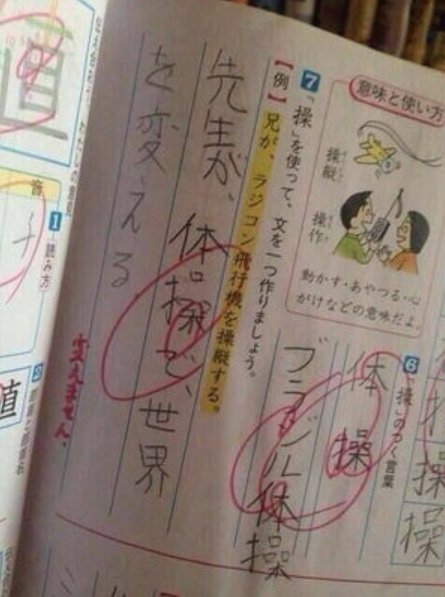 意味と使い方
操縦
操作
動かす・あやつる・心
がけなどの意味だよ。
6 「操」のつく言葉
体操
ブラジル体操
操
操
7 「操」を使って、文を一つ作りましょう。
【例】 兄が、ラジコン飛行機を操縦する。
先生が、体操で、世界
を変える
変えません。
直
1 読み方
チ
値